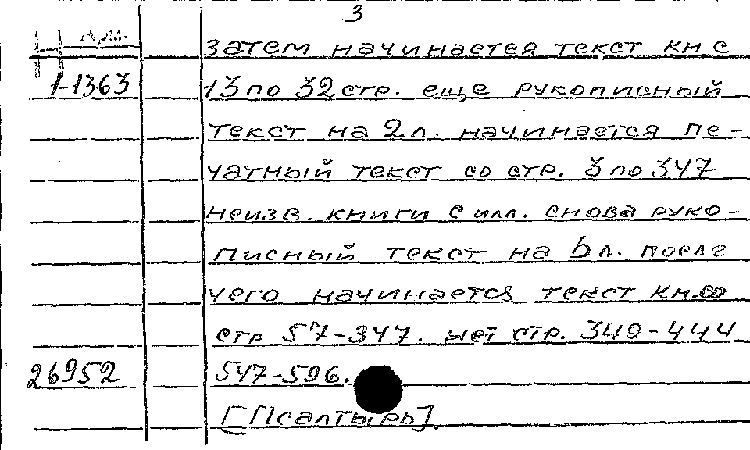 3
затем начинается текст кн с
1-1363 13 по 32 стр. еще рукописный
текст на 2 л. начинается пе-
чатный текст со стр. 3 по 347
неизв. книги с илл. снова руко-
писный текст на 6 л. после
чего начинается текст кн. со
стр 57-347. нет стр. 340-444
26952 547-596.
[[Псалтырь].